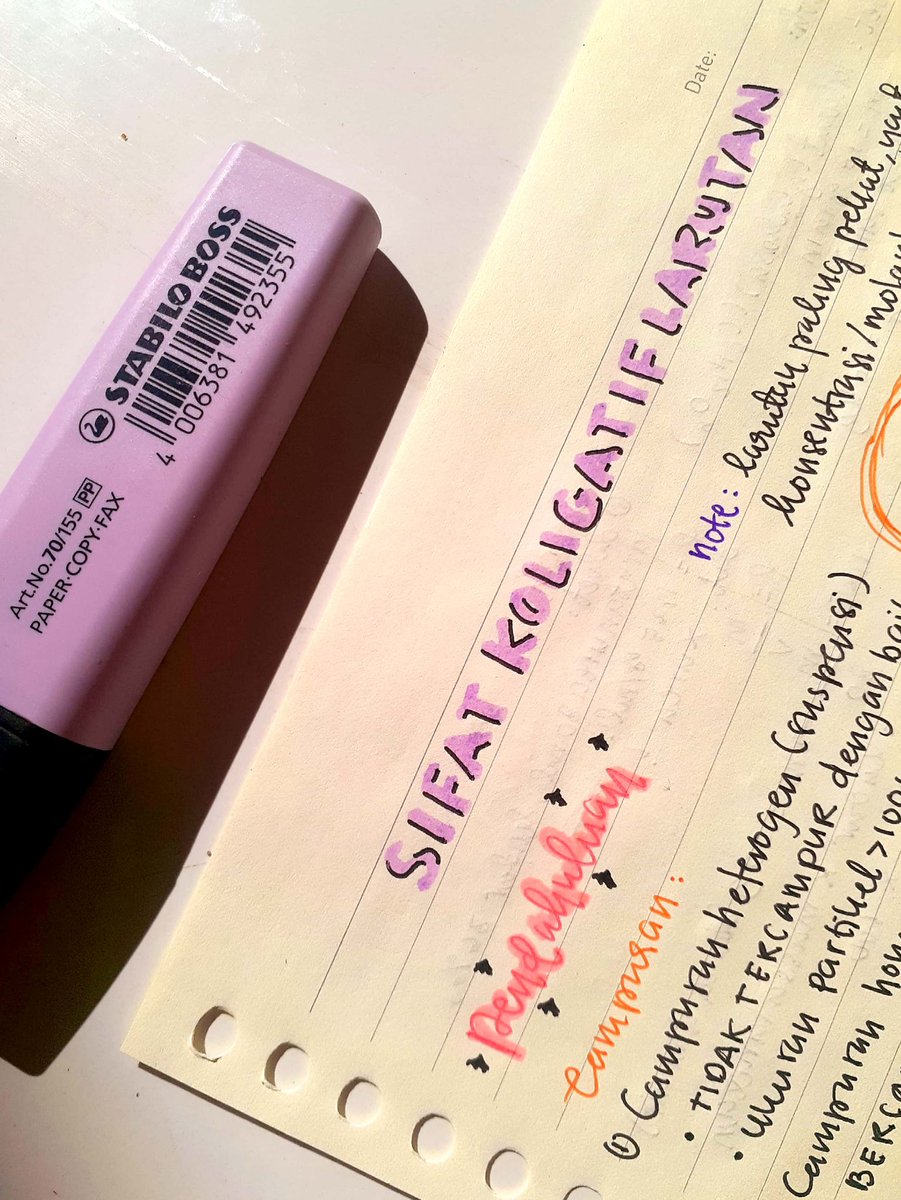 STABILO BOSS
4 006381 492355
Art.No.70/155 PP
PAPER·COPY·FAX
Date:
SIFAT KOLIGATIF LARUTAN
Pendahuluan
note: larutan paling pekat,
konsentrasi/
Campuran:
① Campuran heterogen (suspensi)
• TIDAK TERCAMPUR dengan
• Ukuran Partikel > 100
Campuran